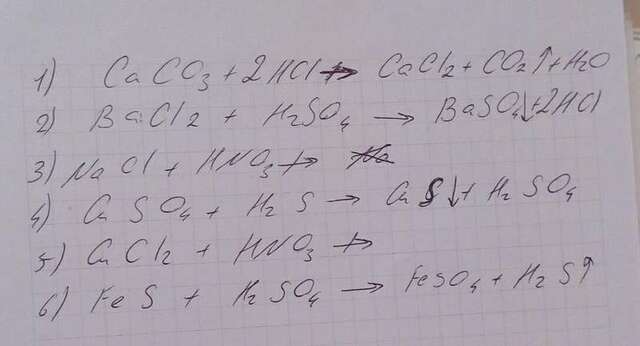 1) CaCO3 + 2HCl → CaCl2 + CO2↑ + H2O
2) BaCl2 + H2SO4 → BaSO4↓ + 2HCl
3) NaCl + HNO3 ↛ Na
4) CuSO4 + H2S → CuS↓ + H2SO4
5) CuCl2 + HNO3 ↛
6) FeS + H2SO4 → FeSO4 + H2S↑